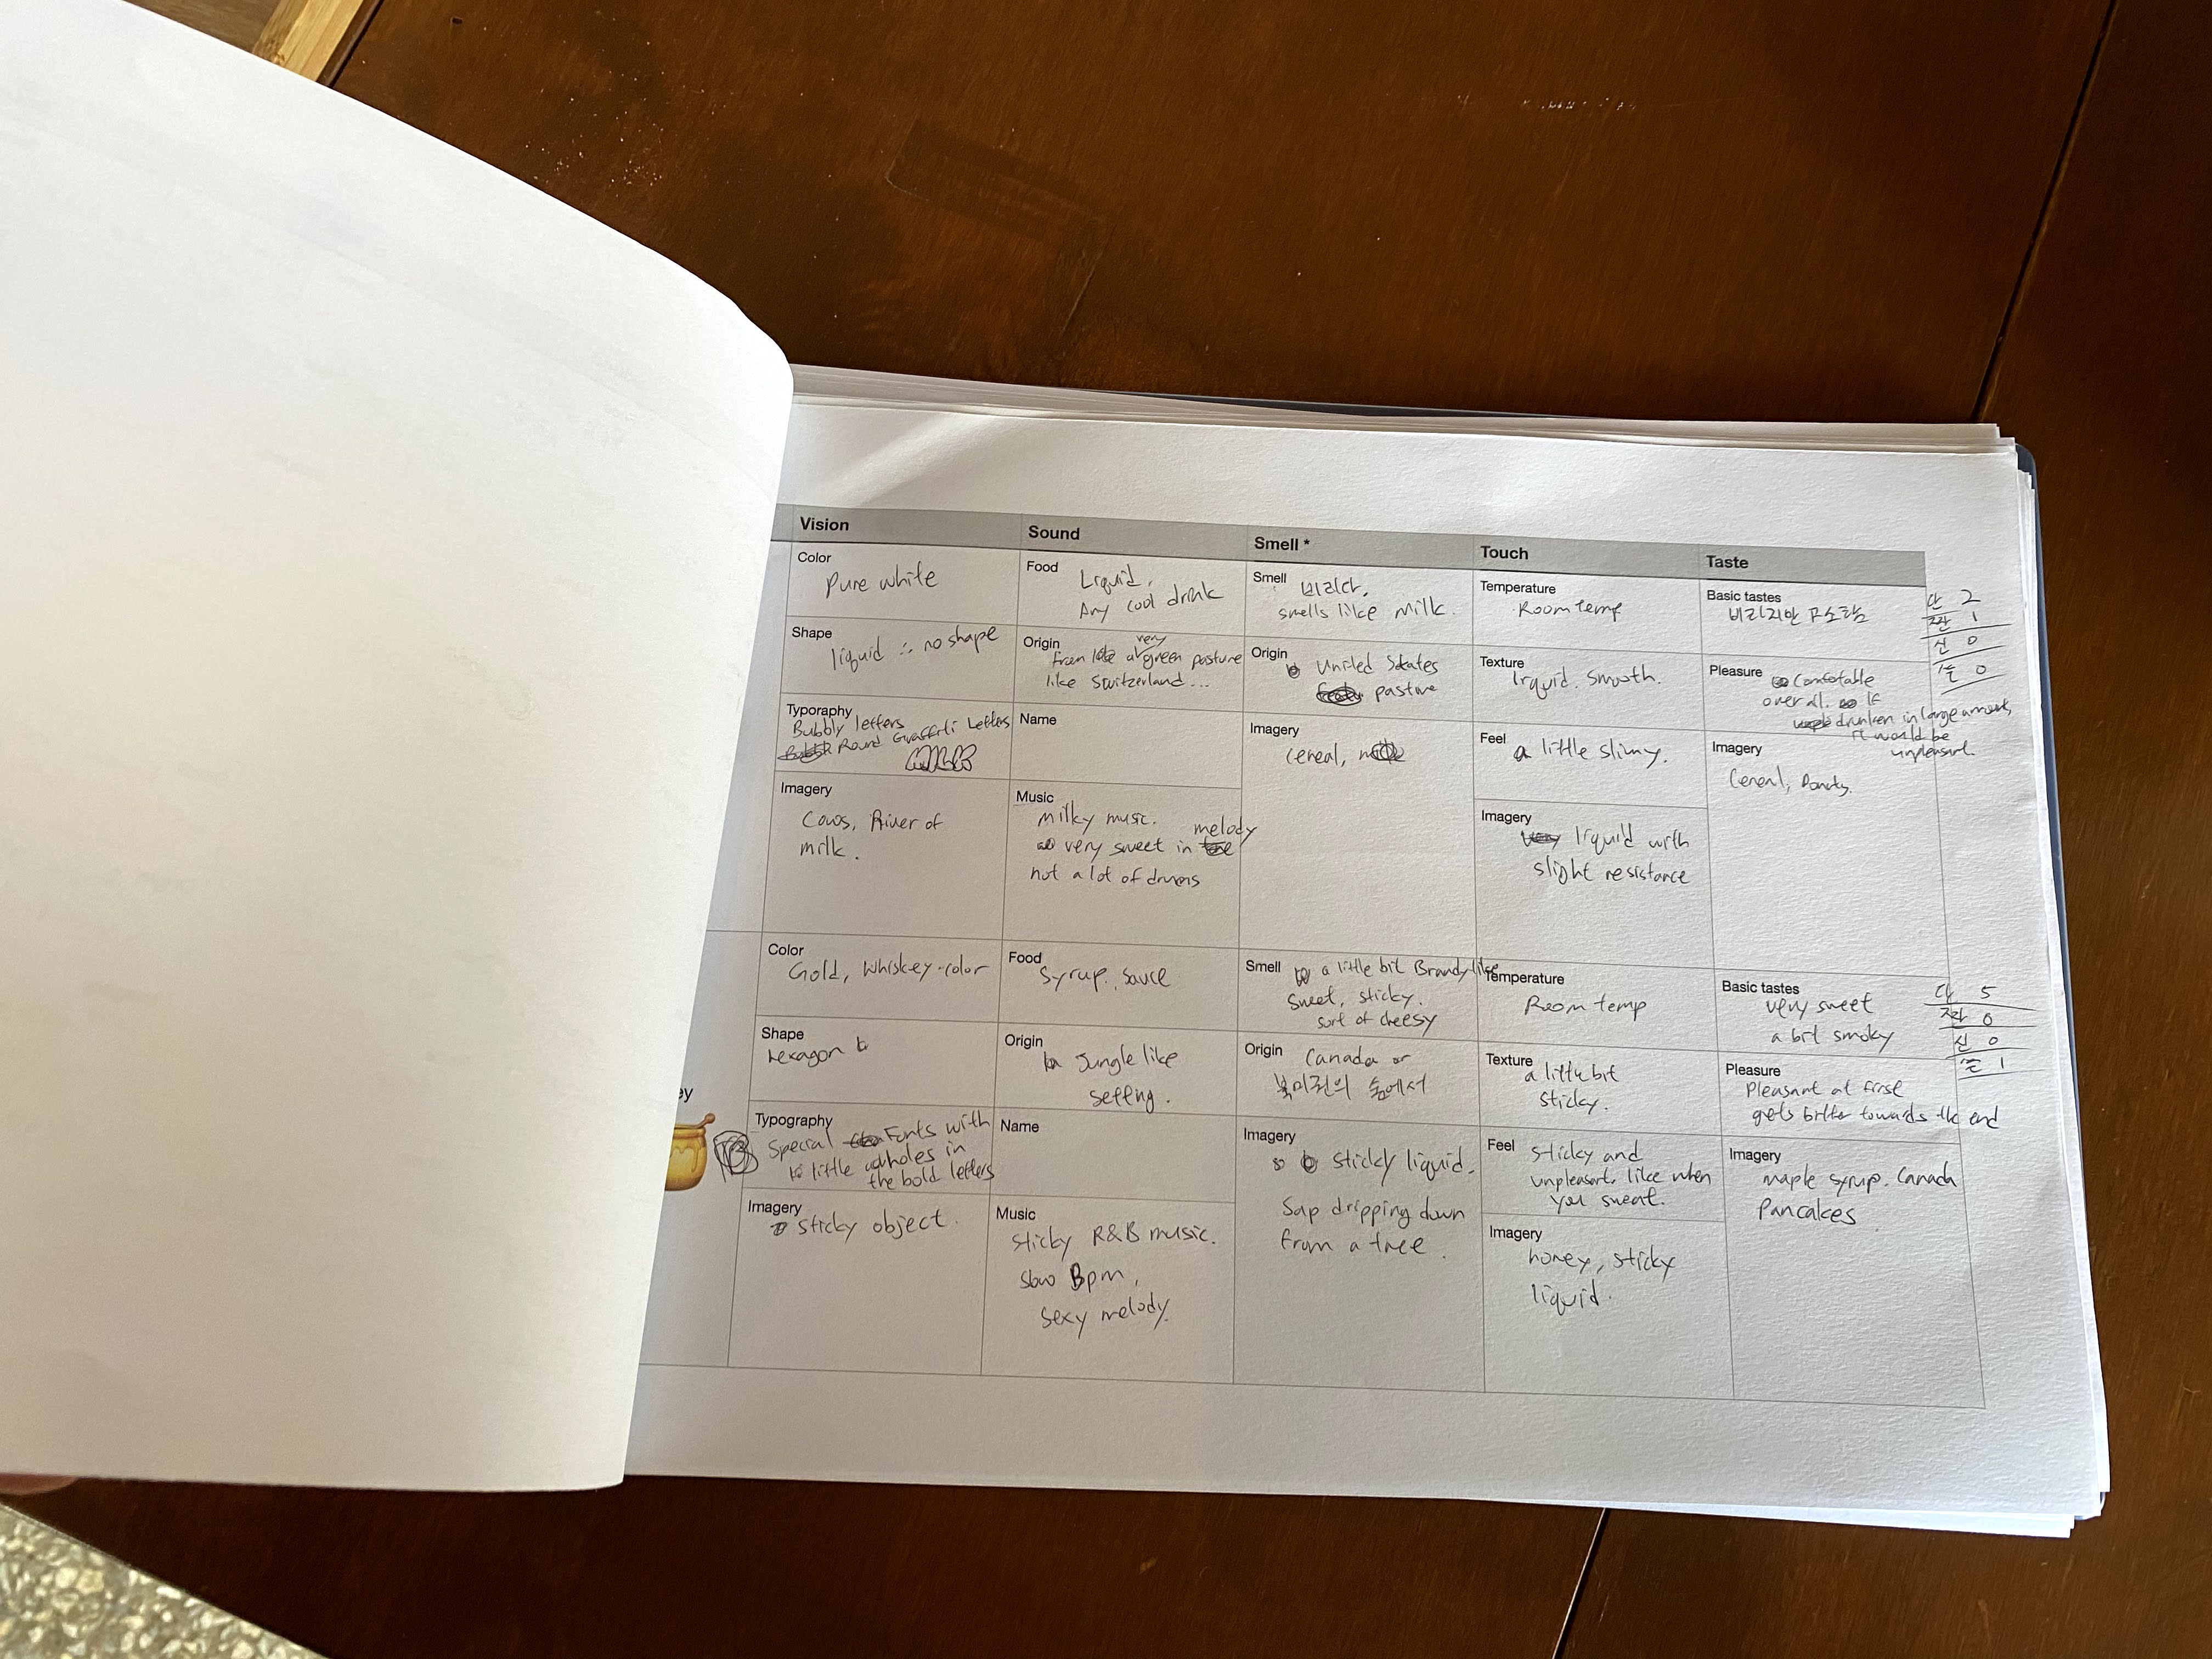 Vision
Sound
Smell *
Touch
Taste
Color
Pure white
Food
Liquid,
Any cool drink
Smell 비리다,
smells like milk.
Temperature
Room temp
Basic tastes
단 2
짠 1
신 0
쓴 0
Shape
liquid ∴ no shape
Origin
from a very green pasture
like Switzerland...
Origin
United States
pasture
Texture
liquid. smooth.
Pleasure
comfortable
overall. If
drunken in large amount,
it would be
unpleasant.
Typoraphy
Bubbly letters
Round Graffiti letters
Name
Imagery
Cereal,
Feel
a little slimy.
Imagery
Cereal,
Imagery
Cows, River of
milk.
Music
milky music.
very sweet in melody
not a lot of drums
Imagery
liquid with
slight resistance
ey
Color
Gold, Whiskey-color
Food
Syrup, sauce
Smell
a little bit Brandy like
sweet, sticky.
sort of cheesy
Temperature
Room temp
Basic tastes
very sweet
a bit smoky
단 5
짠 0
신 0
쓴 1
Shape
hexagon
Origin
Jungle like
setting.
Origin
Canada or
Texture
a little bit
sticky.
Pleasure
Pleasant at first
gets bitter towards the end
Typography
Special Fonts with
little holes in
the bold letters
Name
Imagery
sticky liquid.
Sap dripping down
from a tree.
Feel
sticky and
unpleasant, like when
you sweat.
Imagery
maple syrup. Canada
Pancakes
Imagery
sticky object.
Music
sticky R&B music.
slow Bpm,
sexy melody.
Imagery
honey, sticky
liquid.